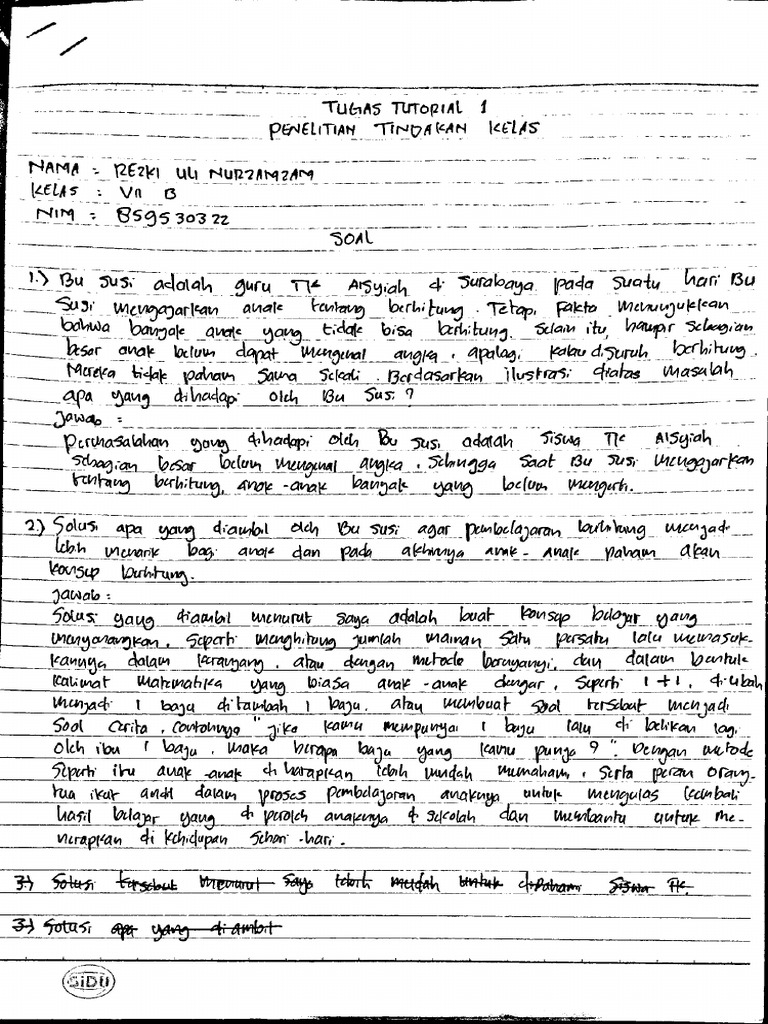 TUGAS TUTORIAL 1
PENELITIAN TINDAKAN KELAS
NAMA : REZKI ULI NURZAMZAM
KELAS : VII B
NIM : 859530322
SOAL
1.) Bu Susi adalah guru TK Aisyiah di Surabaya pada suatu hari Bu
Susi mengajarkan anak tentang berhitung. Tetapi fakta menunjukkan
bahwa banyak anak yang tidak bisa berhitung. Selain itu, hampir sebagian
besar anak belum dapat mengenal angka, apalagi kalau disuruh berhitung.
Mereka tidak paham sama sekali. Berdasarkan ilustrasi diatas masalah
apa yang dihadapi oleh Bu Susi ?
Jawab :
Permasalahan yang dihadapi oleh Bu Susi adalah siswa TK Aisyiah
sebagian besar belum mengenal angka. Sehingga saat Bu Susi mengajarkan
tentang berhitung, anak-anak banyak yang belum mengerti.
2.) Solusi apa yang diambil oleh Bu Susi agar pembelajaran berhitung menjadi
lebih menarik bagi anak dan pada akhirnya anak-anak paham akan
konsep berhitung.
Jawab :
Solusi yang diambil menurut saya adalah buat konsep belajar yang
menyenangkan. Seperti menghitung jumlah mainan satu persatu lalu memasuk-
kannya dalam keranjang. atau dengan metode bernyanyi. dan dalam bentuk
kalimat matematika yang biasa anak-anak dengar. Seperti 1+1, di ubah
menjadi 1 baju ditambah 1 baju. atau membuat soal tersebut menjadi
Soal Cerita. Contohnya "jika kamu mempunyai 1 baju lalu di belikan lagi
oleh ibu 1 baju. maka berapa baju yang kamu punya ?". Dengan metode
seperti itu anak-anak di harapkan lebih mudah memahami. Serta peran orang-
tua ikut andil dalam proses pembelajaran anaknya untuk mengulas kembali
hasil belajar yang di peroleh anaknya di sekolah dan membantu untuk me-
nerapkan di kehidupan sehari-hari.
3.) Solusi tersebut menurut saya lebih mudah untuk dipahami siswa TK.
3.) Solusi apa yang di ambil
SiDU